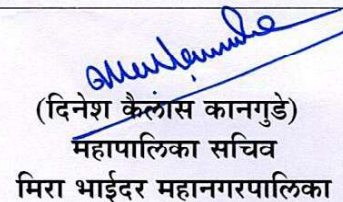 (दिनेश कैलास कानगुडे)
महापालिका सचिव
मिरा भाईदर महानगरपालिका